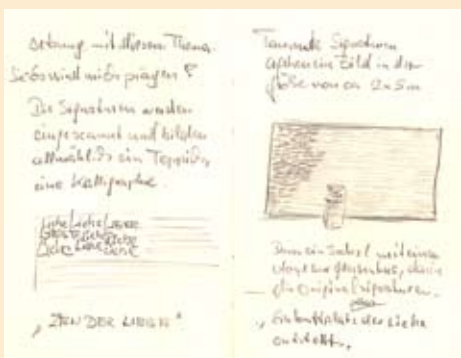 setzung mit diesem Thema.
wird mich prägen?
Die Signaturen werden
eingescannt und bilden
allmählich ein Teppich,
eine Kalligraphie.
Liebe Liebe Liebe
Liebe Liebe
Liebe Liebe
"ZEN DER LIEBE"
Tausende Signaturen
ergeben ein Bild in der
Größe von ca 2x5m
Dann ein Sockel mit einer
die Originalsignaturen.
der Liebe
entsteht.